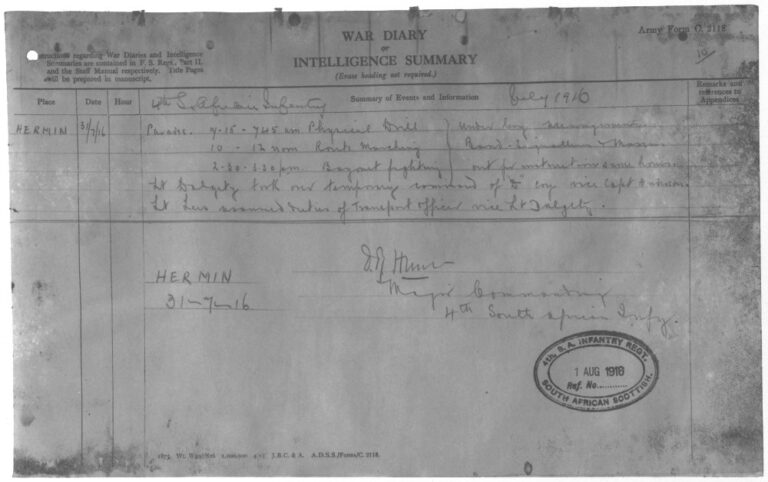 WAR DIARY
or
INTELLIGENCE SUMMARY
(Erase heading not required.)
Army Form C. 2118
Instructions regarding War Diaries and Intelligence
Summaries are contained in F. S. Regs., Part II.
and the Staff Manual respectively. Title Pages
will be prepared in manuscript.
10
Place Date Hour Summary of Events and Information Remarks and references to Appendices
4th S. African Infantry July 1916
HERMIN 31/7/16 Parade. 7-15 - 7.45 am Physical Drill under Coy arrangements
10 - 12 noon Route Marching Band
2-30 - 3.30 pm. Bayonet fighting out for instruction same hours
Lt Dalgety took over temporary command of D coy vice Capt
Lt assumed duties of Transport Officer vice Lt Dalgety.
HERMIN
31-7-16
Major Commanding
4th South African Infy.
4th. S. A. INFANTRY REGT.
1 AUG 1916
Ref. No.
SOUTH AFRICAN SCOTTISH.
1875 Wt. J.B.C. & A. A.D.S.S./Forms/C. 2118.